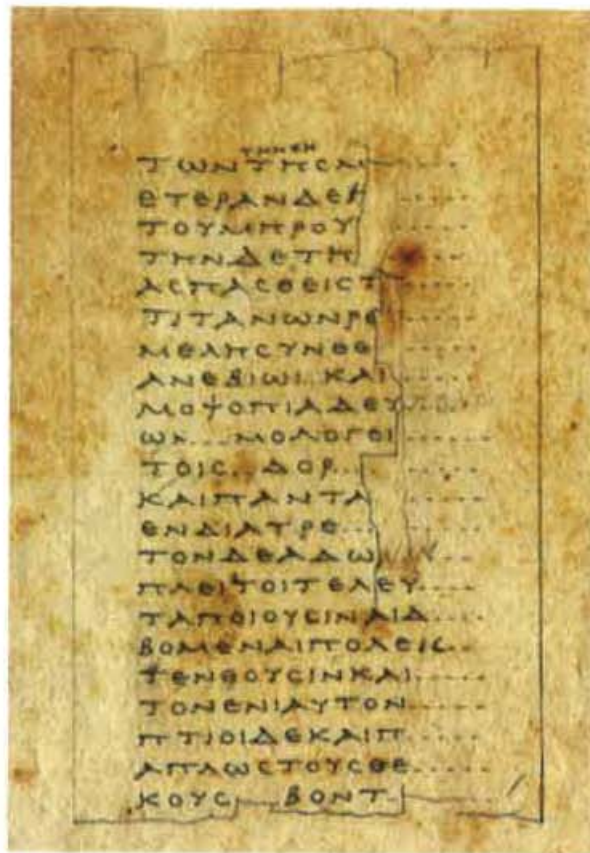 ΤΗΝΕΚ
ΤΩΝΤΗϹΑΙ......
ΕΤΕΡΑΝΔΕΚ .....
ΤΟΥΜΗΡΟΥ .....
ΤΗΝΔΕΤΗ .....
ΑϹΠΑϹΘΕΙϹΤ.....
ΤΙΤΑΝΩΝΡΕ.....
ΜΕΛΗϹΥΝΘΕ.....
ΑΝΕΒΙΩΙ..ΚΑΙ.....
ΜΟΨΟΠΙΑΔΕΥ
ΩΚ...ΜΟΛΟΓΕΙ......
ΤΟΙϹ..ΔΟΡ...
ΚΑΙΠΑΝΤΑ .....
ΕΝΔΙΑΤΡΕ...
ΤΟΝΔΕΑΔΩΝΙΝ....
ΠΛΕΙΤΟΙΤΕΛΕΥ.....
ΤΑΠΟΙΟΥϹΙΝΑΙΔ.....
ΒΟΜΕΝΑΙΠΟΛΕΙϹ....
ΤΕΝΘΟΥϹΙΝΚΑΙ.....
ΤΟΝΕΝΙΑΥΤΟΝ.....
ΠΤΙΟΙΔΕΚΑΙΠ.....
ΑΠΛΩϹΤΟΥϹΘΕ.....
ΚΟΥϹ...ΒΟΝΤ.......